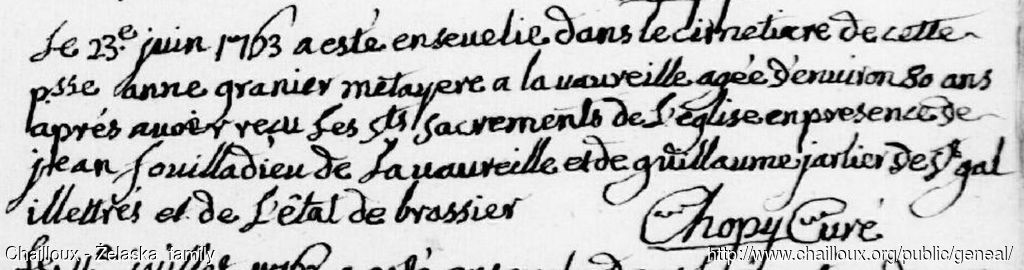 Le 23.e juin 1763 a esté ensevelie dans le cimetiere de cette
p.sse anne granier metayere a la vaureille agée d'environ 80 ans
aprés avoir reçu Les Sts sacrements de L'église en presence de
jean fouilladieu de La vaureille et de guillaume jarlier de St gal
illettrés et de L'état de brassier
Chopy Curé
Chailloux - Zelaska family
http://www.chailloux.org/public/geneal/